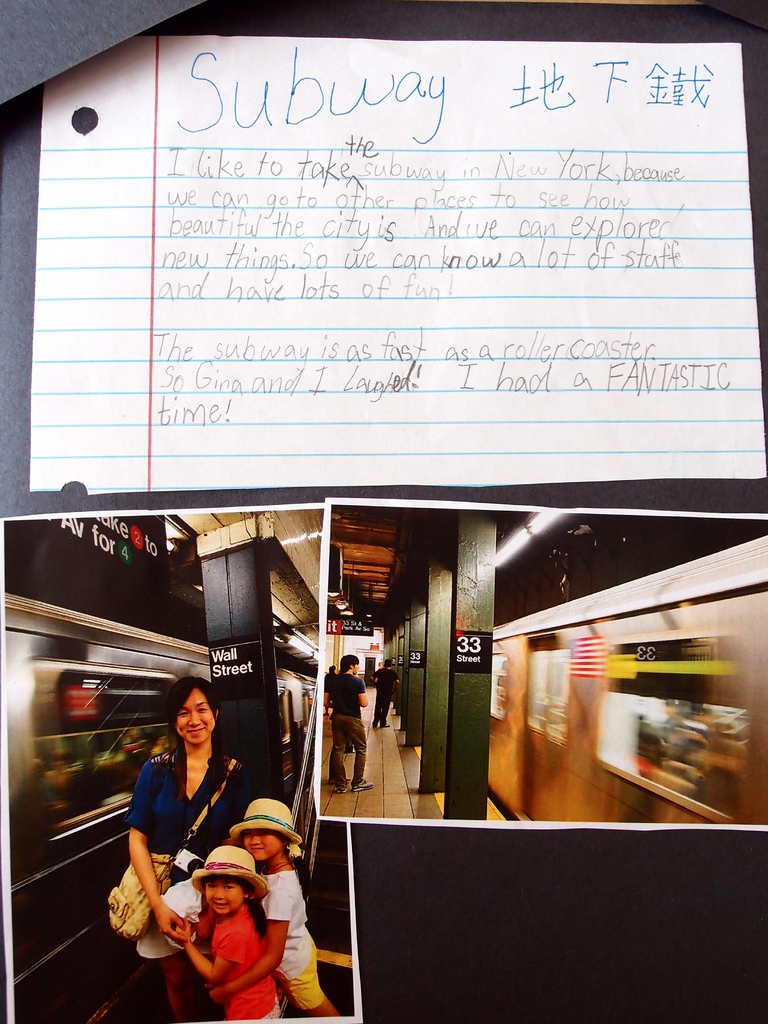 Subway 地下鐵
I like to take the subway in New York, because
we can go to other places to see how
beautiful the city is. And we can explorer
new things. So we can know a lot of staff
and have lots of fun!
The subway is as fast as a roller coaster.
So Gina and I Laughed! I had a FANTASTIC
time!
take 2 to
Av for 4
Wall
Street
it 33 St &
Park Av So
33
33
Street
33